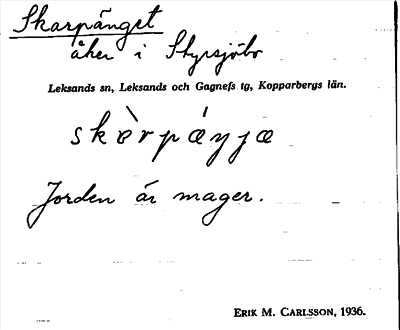 Skarpänget
åker i Styrsjöbo
Leksands sn, Leksands och Gagnefs tg, Kopparbergs län.
skὲrpǽŋjæ
Jorden är mager.
ERIK M. CARLSSON, 1936.